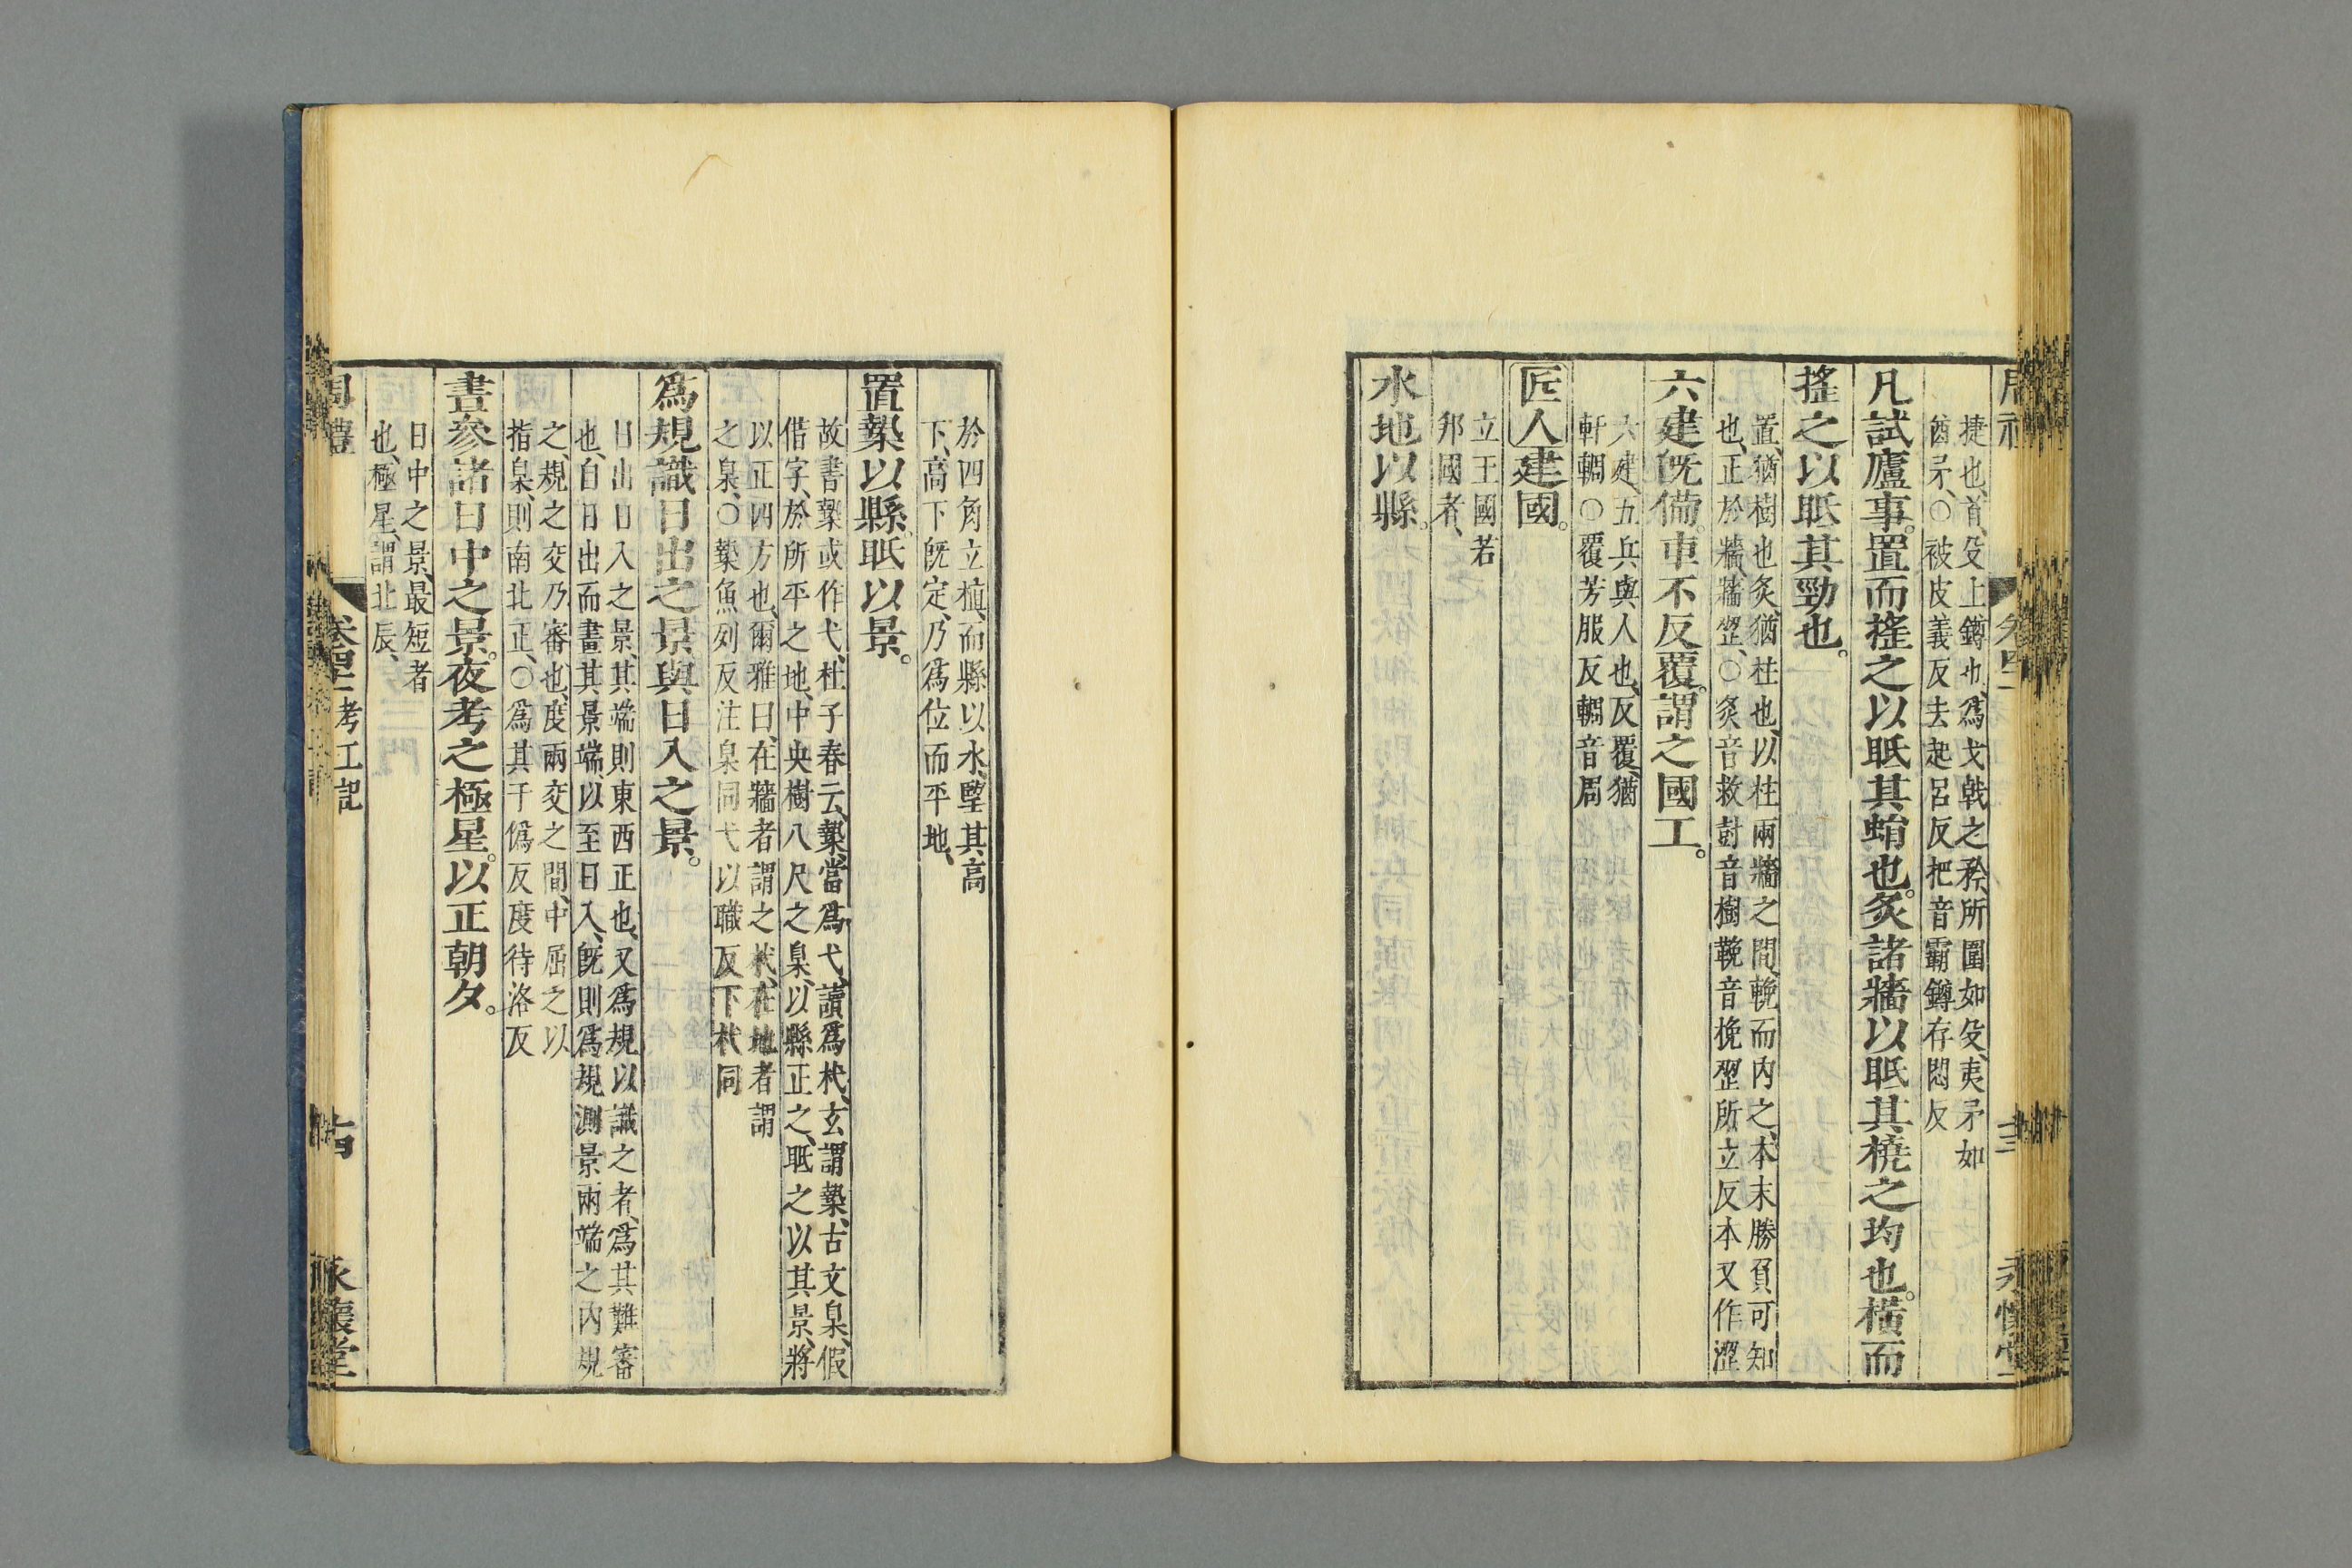 捷也、首、殳上鐏也、爲戈戟之矜、所圍如殳、夷矛如
酋矛、○被皮義反去起呂反把音霸鐏存悶反
凡試廬事。置而搖之以眡其蜎也。炙諸牆以眡其橈之均也。橫而
搖之以眡其勁也。
置、猶樹也炙、猶柱也、以柱兩牆之間、輓而内之、本末勝負可知
也、正於牆、牆歰、○炙音救尌音樹輓音挽歰所立反本又作澀
六建旣備。車不反覆。謂之國工。
六建、五兵與人也、反覆、猶
軒輖○覆芳服反輖音周
匠人建國。
立王國若
邦國者、
水地以縣。
於四角立植、而縣以水、望其高
下、高下旣定、乃爲位而平地、
置槷以縣、眡以景。
故書槷或作弋、杜子春云、槷當爲弋、讀爲杙、玄謂槷、古文臬、假
借字、於所平之地、中央樹八尺之臬、以縣正之、眡之以其景、將
以正四方也、爾雅曰、在牆者謂之杙、在地者謂
之臬、○槷魚列反注臬同弋以職反下杙同
爲規識日出之景與日入之景。
日出日入之景、其端則東西正也、又爲規以識之者、爲其難審
也、自日出而畫其景端、以至日入、旣則爲規測景兩端之内規
之、規之交乃審也、度兩交之間、中屈之以
指臬、則南北正、○爲其于僞反度待洛反
晝參諸日中之景。夜考之極星。以正朝夕。
日中之景、最短者
也、極星、謂北辰、
周禮 卷四十一考工記 十四 永懷堂